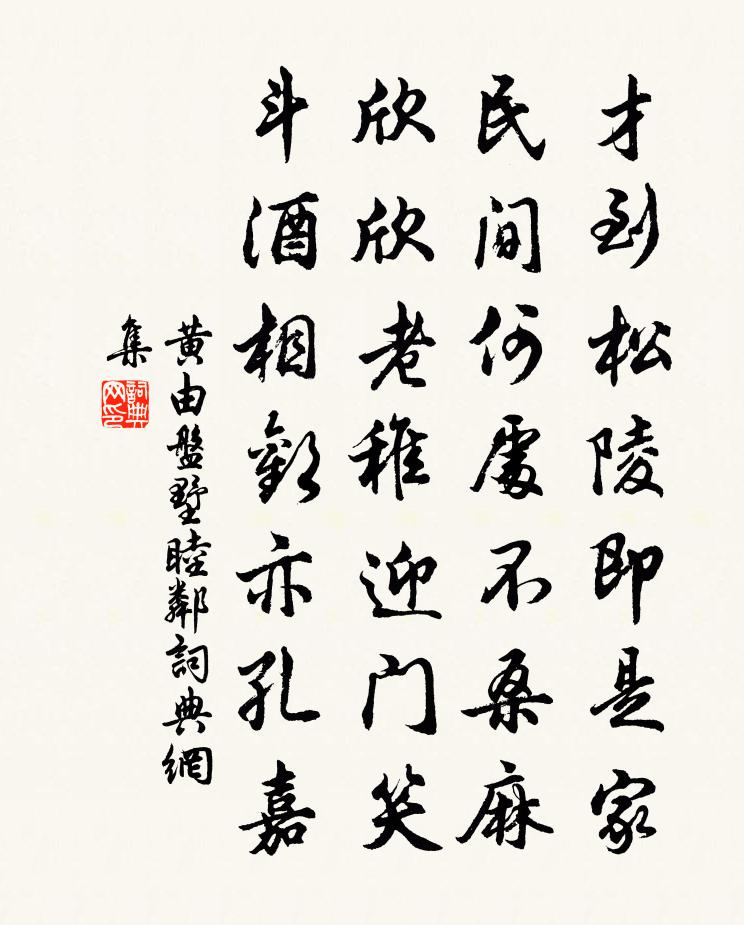 才到松陵即是家
民间何處不桑麻
欣欣老稚迎门笑
斗酒相歡亦孔嘉
黄由盤墅睦鄰詞典網
集
詞典網印